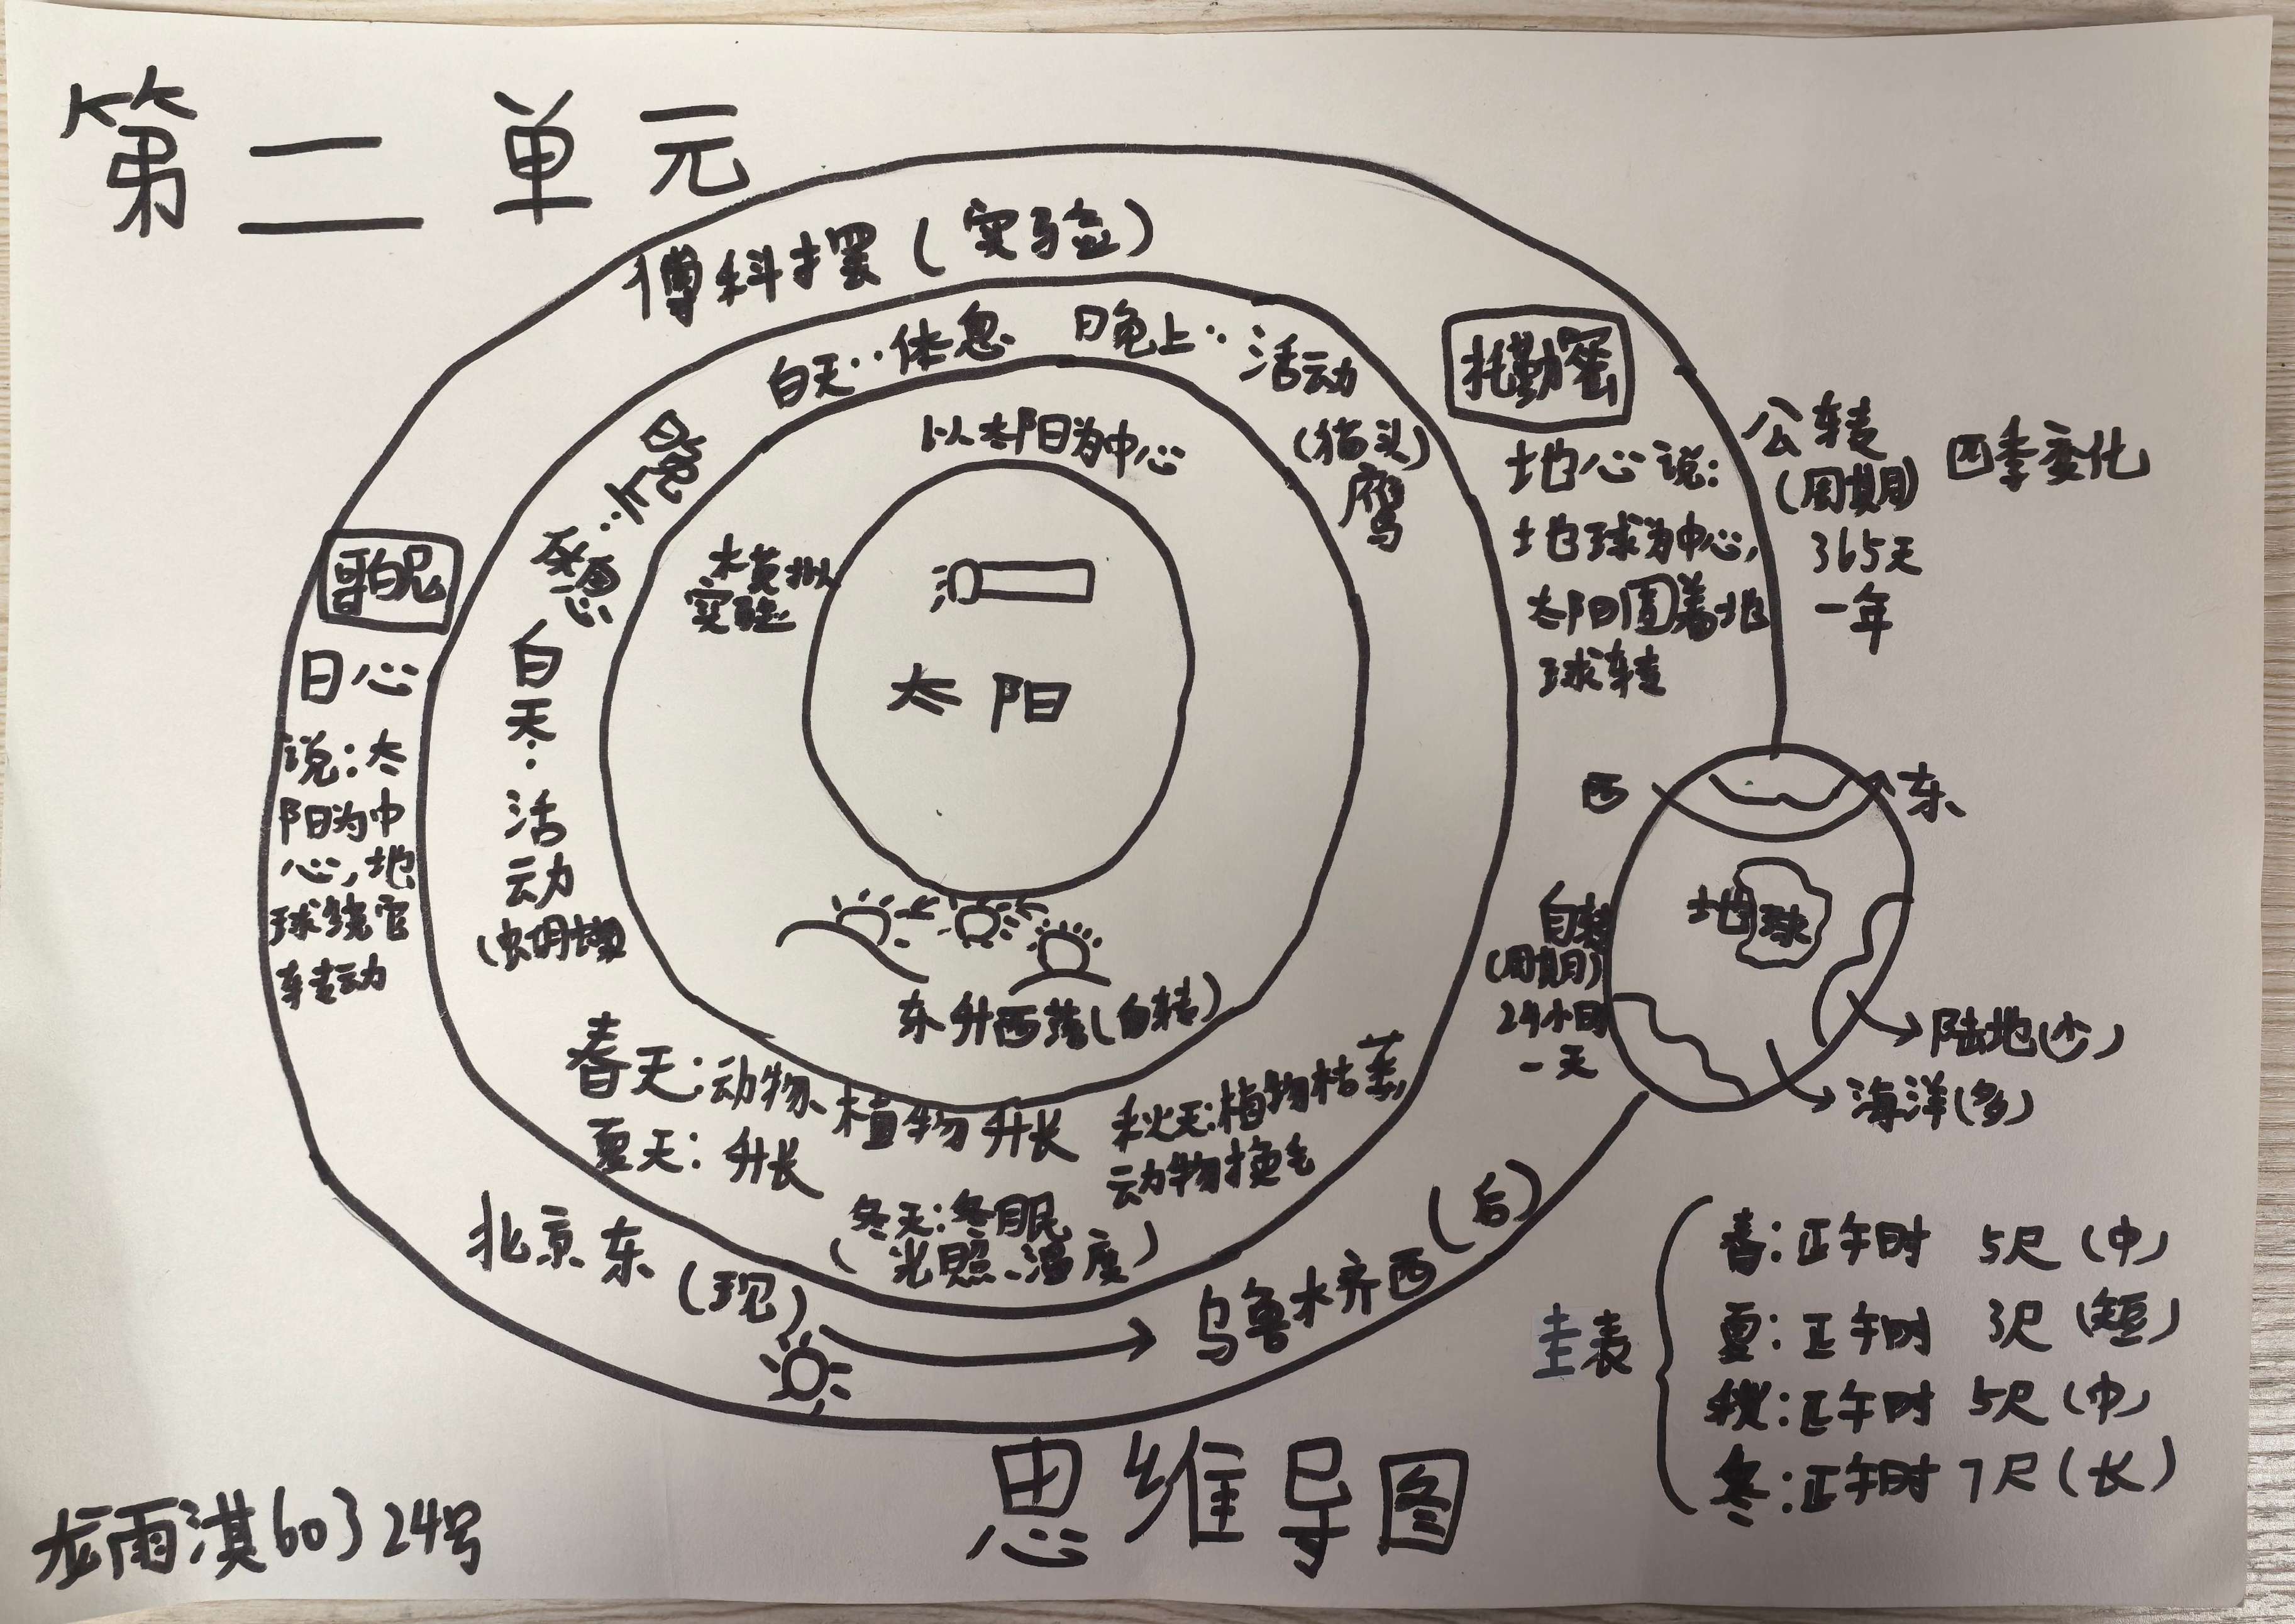 第二单元
傅科摆(实验)
白天··休息
日晚上··活动
(猫头)
鹰
日晚上··休息
白天··活动
以太阳为中心
模拟
实验
太阳
东升西落(自转)
哥白尼
日心
说:太
阳为中
心,地
球绕它
转动
托勒密
地心说:
地球为中心,
太阳围着地
球转
公转
(周期)
365天
一年
四季变化
西
东
地球
自转
(周期)
24小时
一天
陆地(少)
海洋(多)
春天:动物、植物升长
夏天:升长
秋天:植物枯萎,
动物换毛
冬天:冬眠
(光照、温度)
北京东(现)
乌鲁木齐西(后)
圭表
春:正午时 5尺(中)
夏:正午时 3尺(短)
秋:正午时 5尺(中)
冬:正午时 7尺(长)
思维导图
龙雨淇603 24号